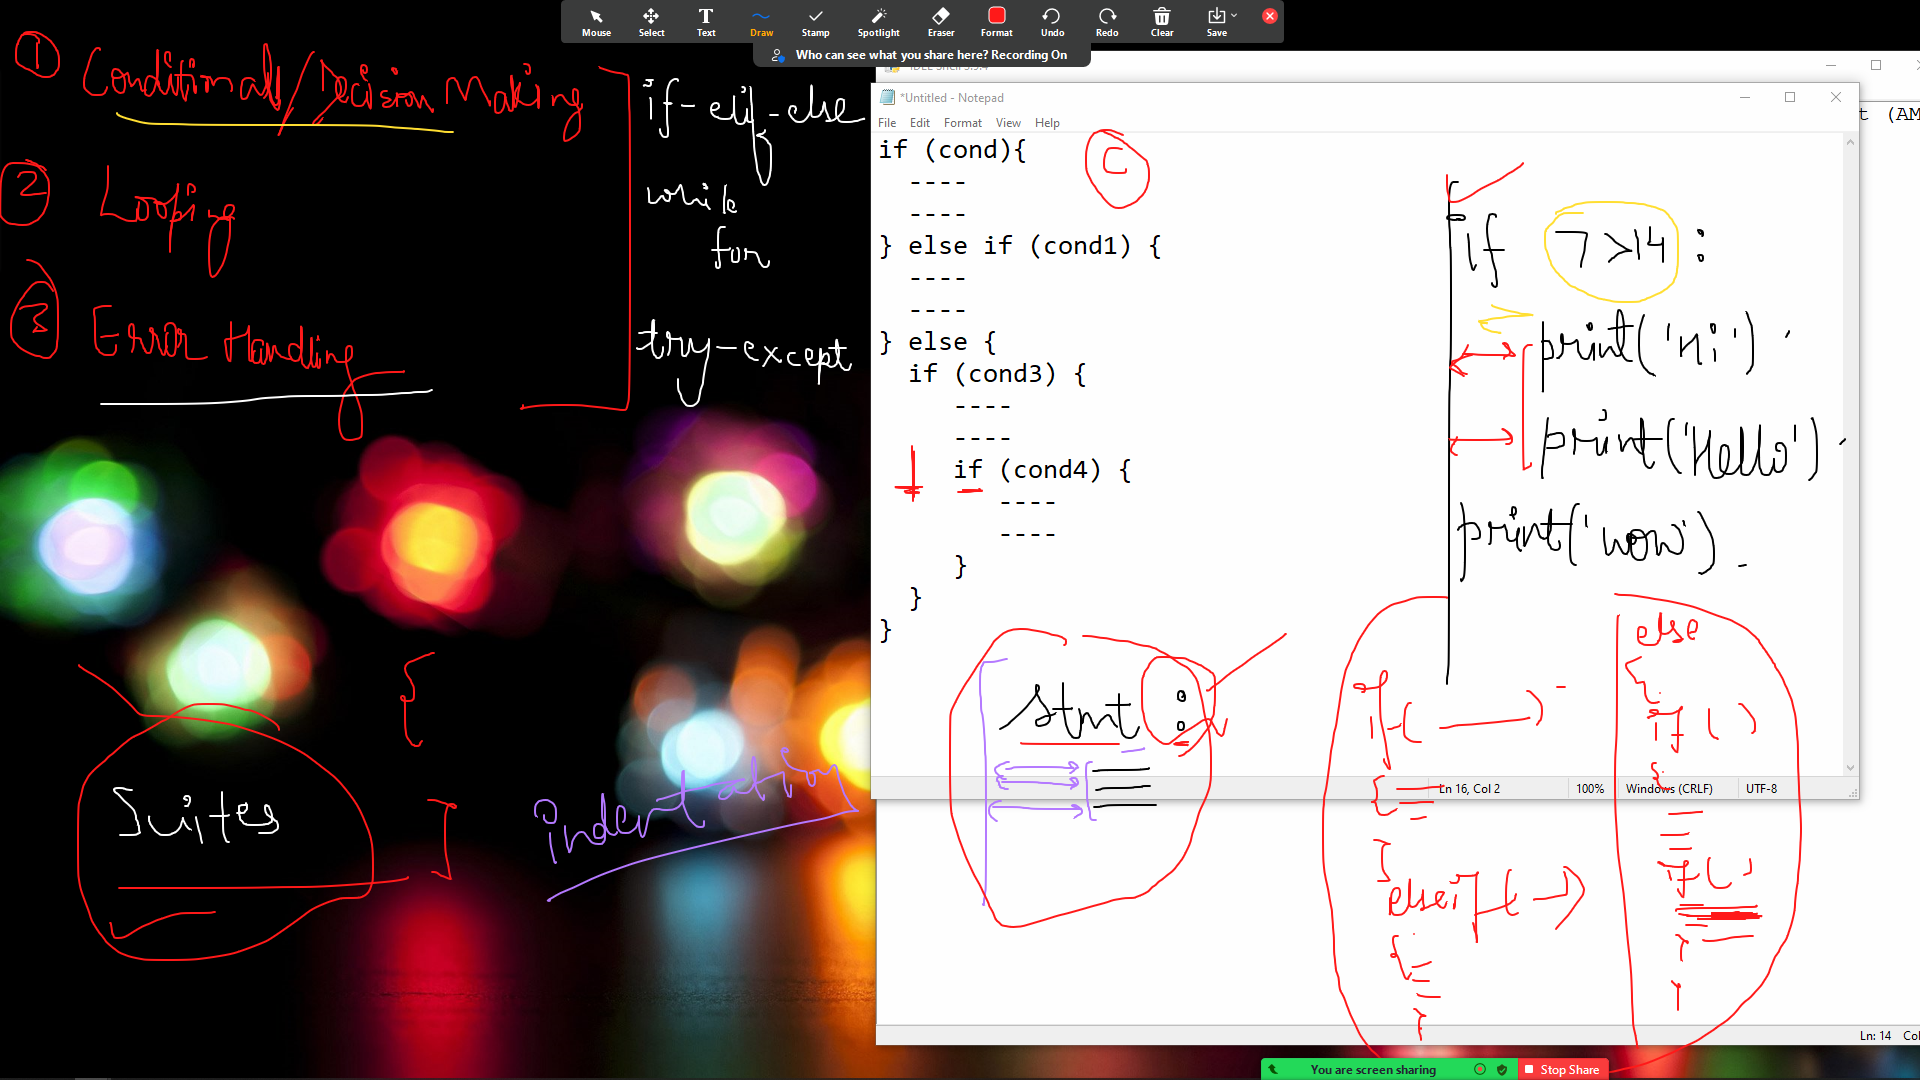 Mouse Select Text Draw Stamp Spotlight Eraser Format Undo Redo Clear Save
Who can see what you share here? Recording On
1 Conditional/Decision Making
2 Looping
3 Error Handling
if-elif-else
while
for
try-except
Suites
{
}
indentation
*Untitled - Notepad
File Edit Format View Help
if (cond){
----
----
} else if (cond1) {
----
----
} else {
if (cond3) {
----
----
if (cond4) {
----
----
}
}
}
C
if 7>14 :
print('Hi')
print('Hello')
print('wow')
stmt :
if ( )
{
}
elseif ( )
{
}
else
{
if ( )
{
if ( )
}
}
Ln 16, Col 2 100% Windows (CRLF) UTF-8
t (AM
Ln: 14 Col
You are screen sharing Stop Share